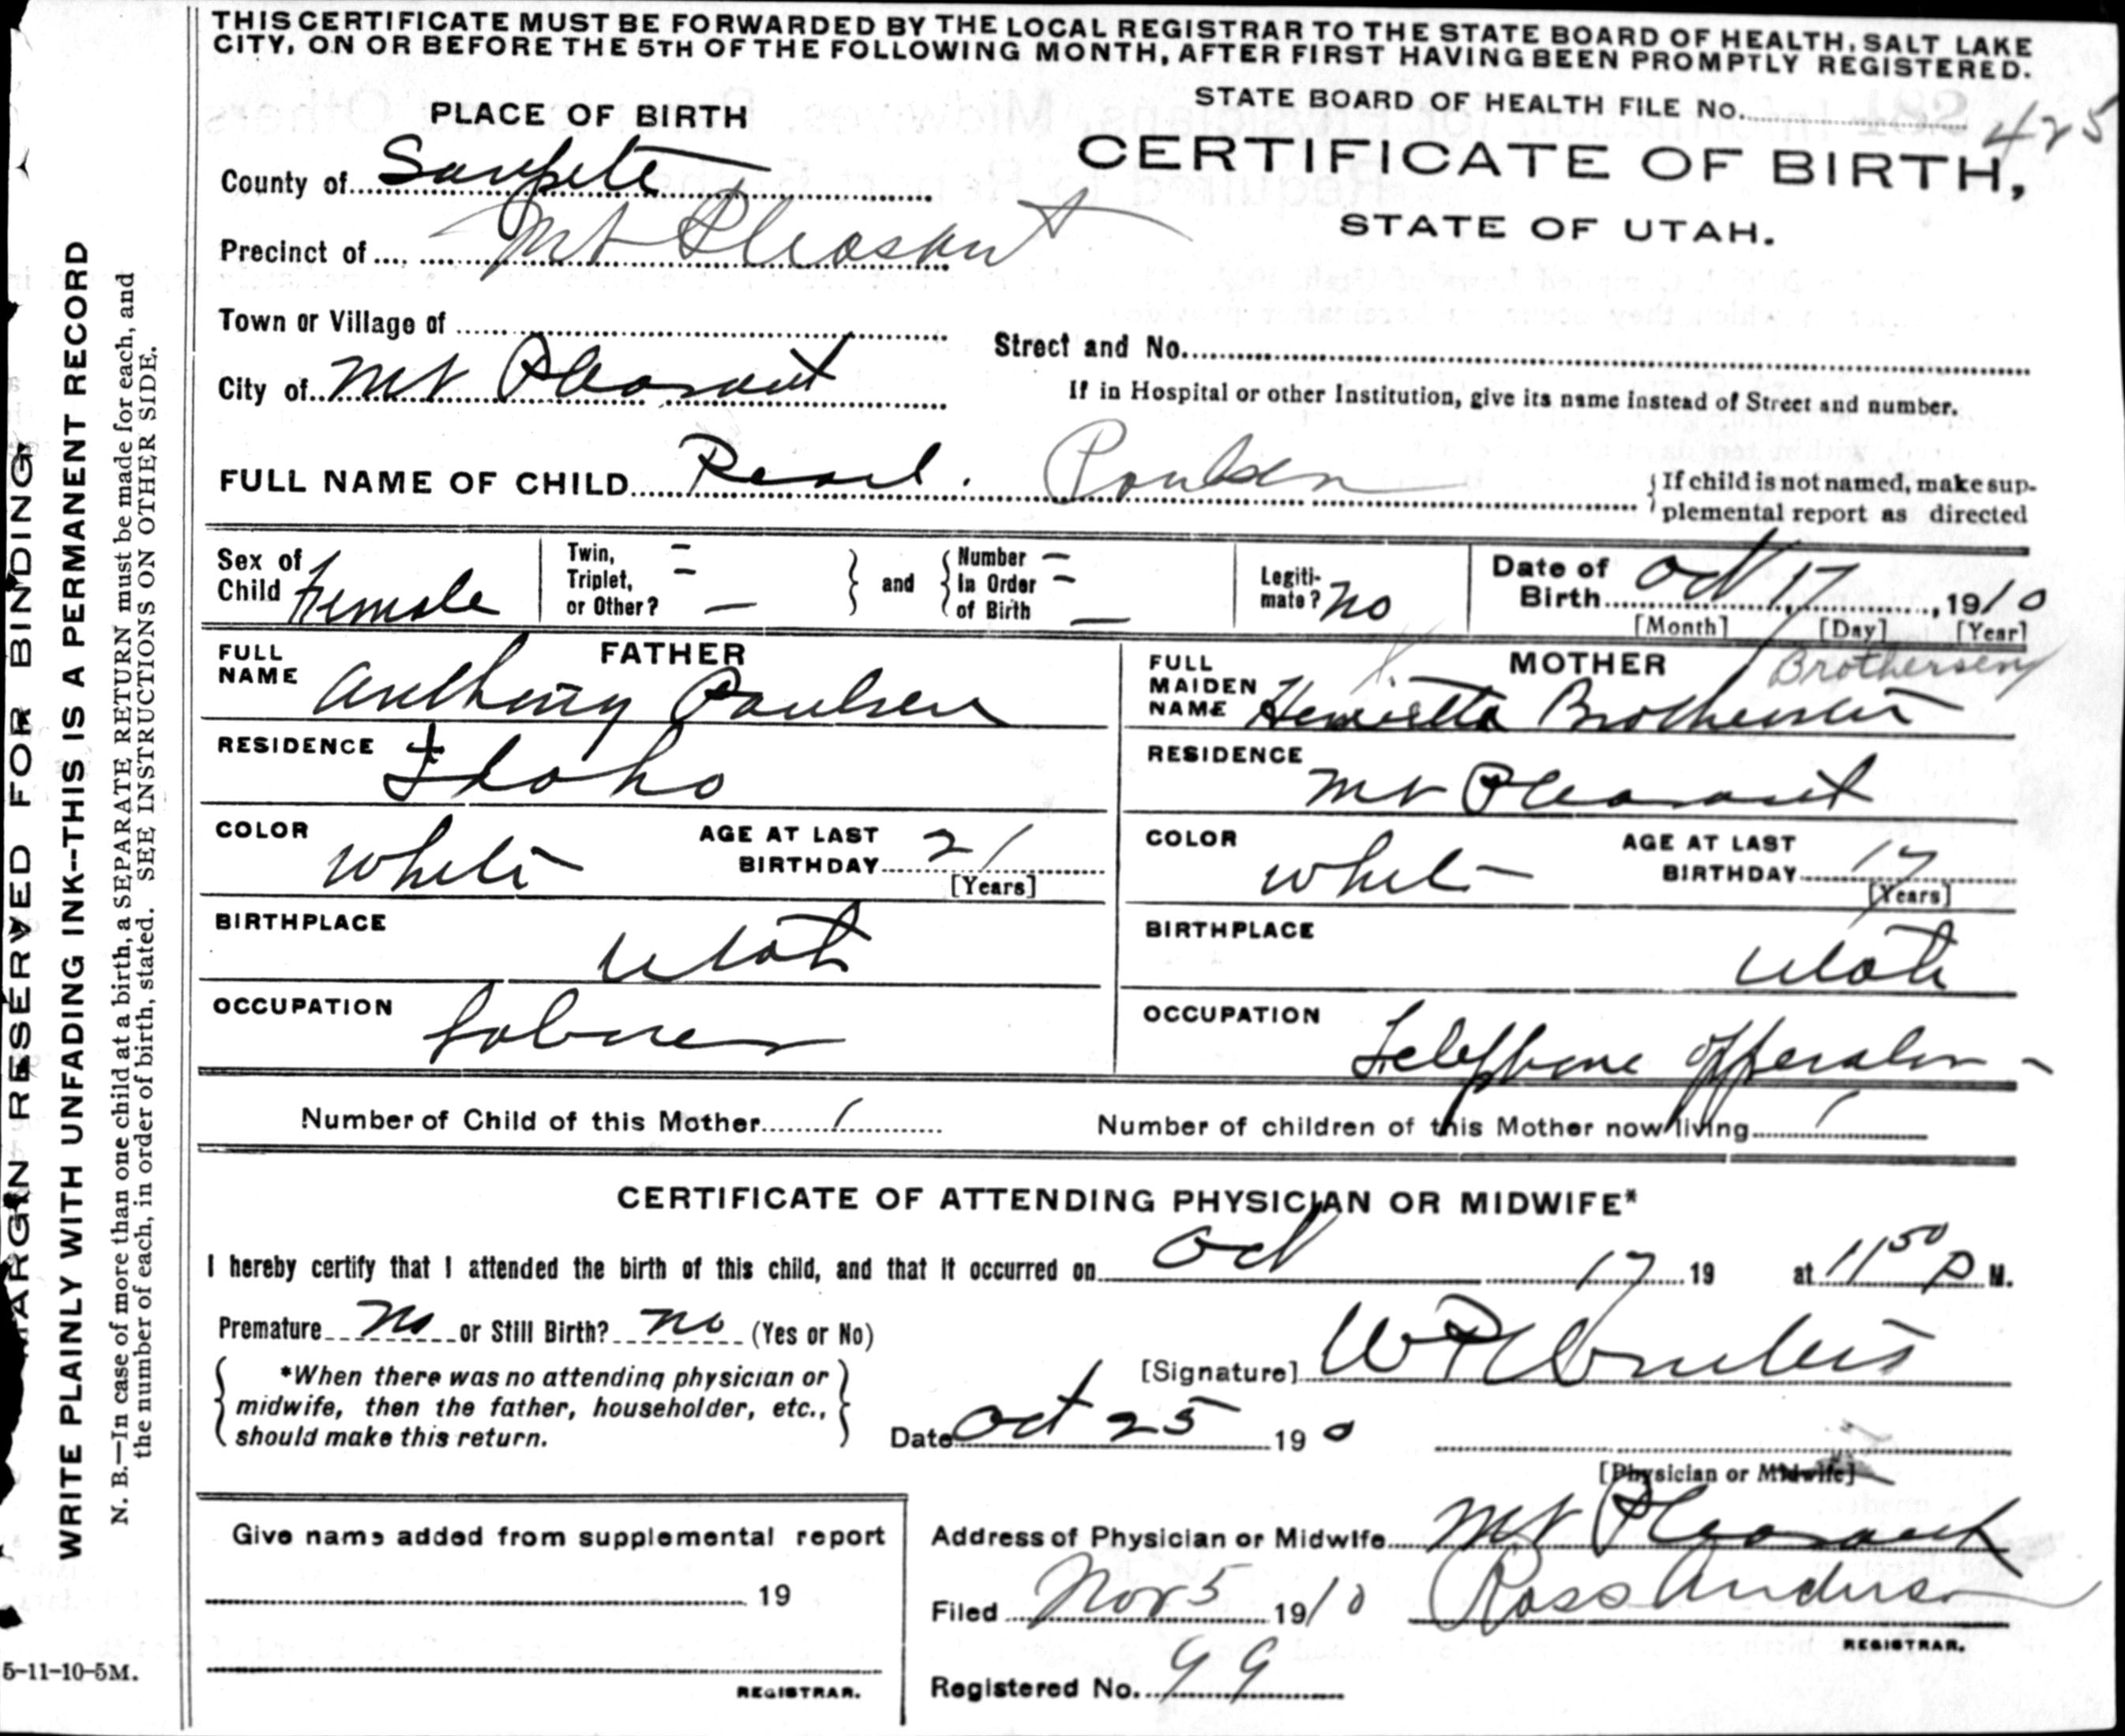 THIS CERTIFICATE MUST BE FORWARDED BY THE LOCAL REGISTRAR TO THE STATE BOARD OF HEALTH, SALT LAKE
CITY, ON OR BEFORE THE 5TH OF THE FOLLOWING MONTH, AFTER FIRST HAVING BEEN PROMPTLY REGISTERED.
PLACE OF BIRTH
STATE BOARD OF HEALTH FILE No. 425
CERTIFICATE OF BIRTH,
STATE OF UTAH.
County of Sanpete
Precinct of Mt Pleasant
Town or Village of
Street and No.
City of Mt Pleasant
If in Hospital or other Institution, give its name instead of Street and number.
FULL NAME OF CHILD Pearl. Poulsen
If child is not named, make sup-
plemental report as directed
Sex of Child Female
Twin, -
Triplet, -
or Other? -
and
Number -
In Order -
of Birth -
Legiti-
mate? no
Date of
Birth Oct 17, 1910
[Month] [Day] [Year]
FATHER
FULL
NAME Anthony Paulsen
RESIDENCE Idaho
COLOR White
AGE AT LAST
BIRTHDAY 21
[Years]
BIRTHPLACE Utah
OCCUPATION Laborer
MOTHER
Brothersen
FULL
MAIDEN
NAME Henrietta
RESIDENCE Mt Pleasant
COLOR White
AGE AT LAST
BIRTHDAY 17
[Years]
BIRTHPLACE Utah
OCCUPATION Telephone
Number of Child of this Mother 1
Number of children of this Mother now living 1
CERTIFICATE OF ATTENDING PHYSICIAN OR MIDWIFE*
I hereby certify that I attended the birth of this child, and that it occurred on Oct 17 19 at 11 50 P M.
Premature No or Still Birth? no (Yes or No)
*When there was no attending physician or
midwife, then the father, householder, etc.,
should make this return.
[Signature]
Date Oct 25 19 0
[Physician or Midwife]
Give name added from supplemental report
19
REGISTRAR.
Address of Physician or Midwife Mt Pleasant
Filed Nov 5 1910 Ross
REGISTRAR.
Registered No. 99
MARGIN RESERVED FOR BINDING
WRITE PLAINLY WITH UNFADING INK--THIS IS A PERMANENT RECORD
N. B.—In case of more than one child at a birth, a SEPARATE RETURN must be made for each, and
the number of each, in order of birth, stated. SEE INSTRUCTIONS ON OTHER SIDE.
5-11-10-5M.